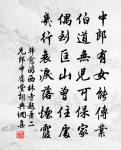 中郎有女能傳業
伯道無兒可保家
偶到匡山曾住處
幾行衰淚落煙霞
韓愈游西林寺題蕭二
兄郎中舊堂詞典網書